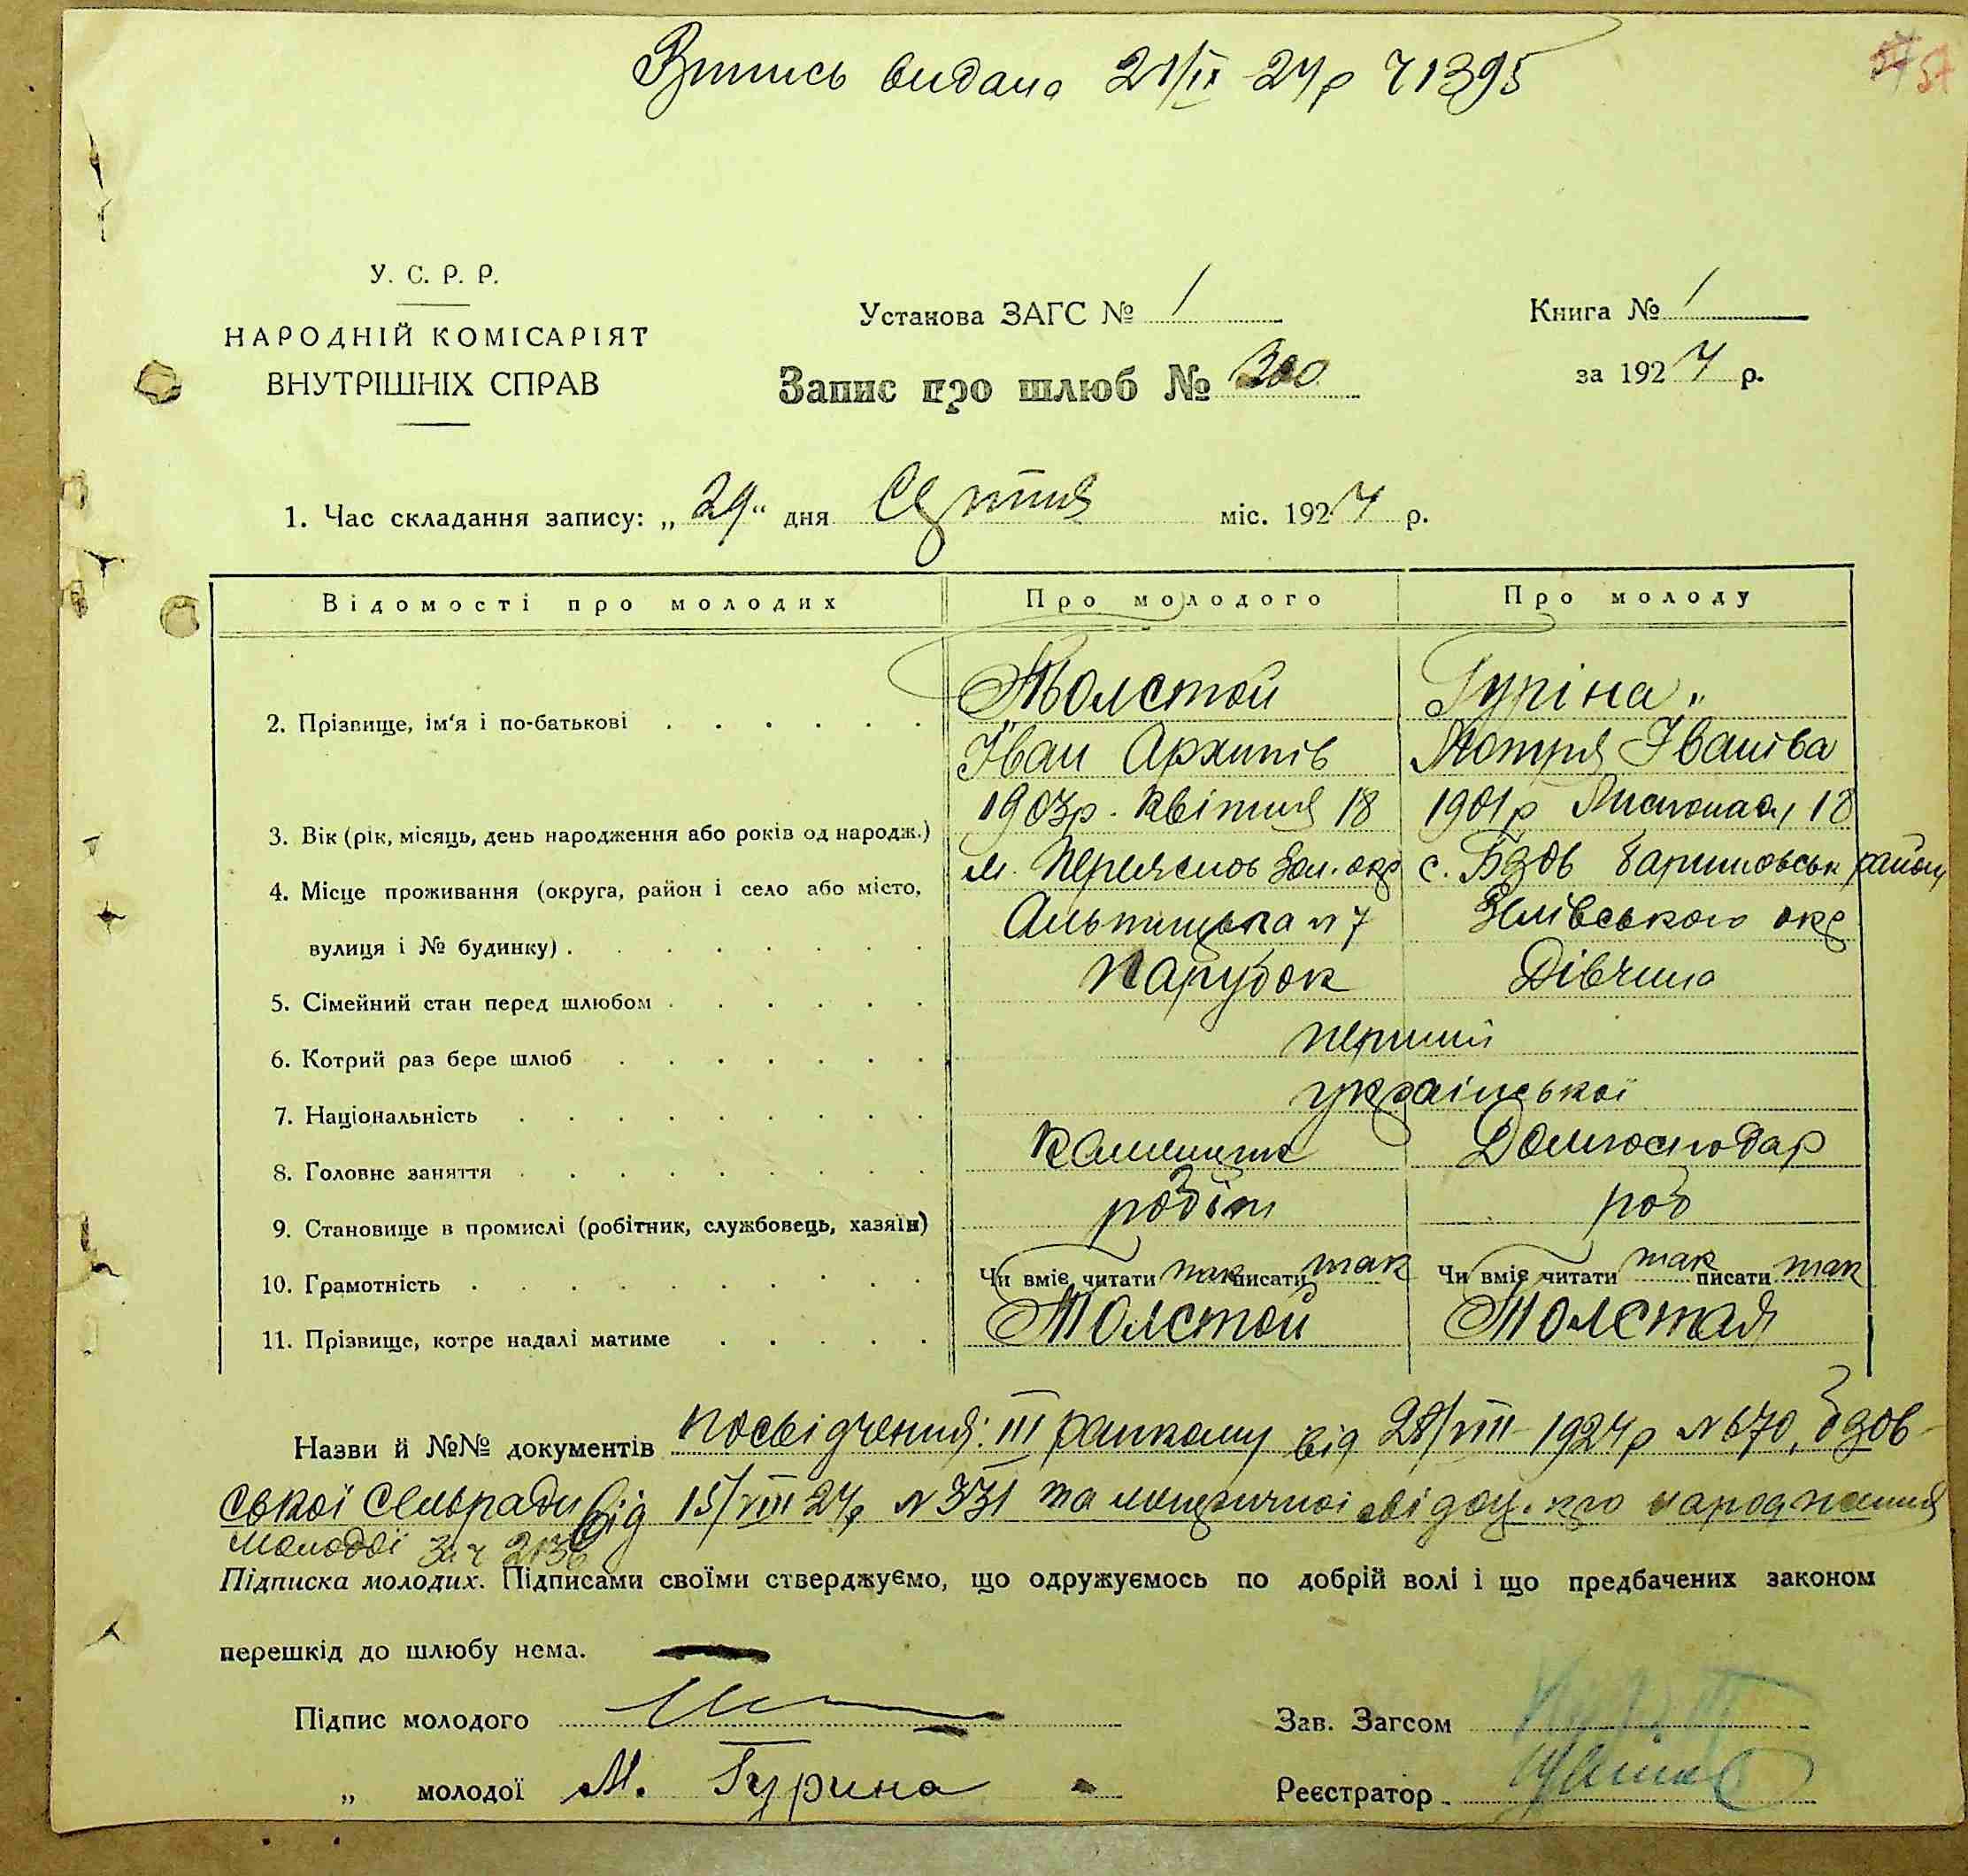 Витись видана 21/IX 24р Ч 1395
57 57
У. С. Р. Р.
НАРОДНІЙ КОМІСАРІЯТ
ВНУТРІШНІХ СПРАВ
Установа ЗАГС № 1
Книга № 1
Запис про шлюб № 300
за 1924 р.
1. Час складання запису: „29“ дня Серпня міс. 1924 р.
Відомості про молодих Про молодого Про молоду
2. Прізвище, ім'я і по-батькові Толстой Гуріна
Іван Архипів Мотря Іванівa
3. Вік (рік, місяць, день народження або років од народж.) 1903р. Квітня 18 1901р Листопада 18
4. Місце проживання (округа, район і село або місто, м. Переяслов Зол. окр с. Бзов Баришовськ району
вулиця і № будинку) Альтицька № 7 Київського окр
5. Сімейний стан перед шлюбом Парубок Дівчина
6. Котрий раз бере шлюб перший
7. Національність української
8. Головне заняття Домгосподар
9. Становище в промислі (робітник, службовець, хазяїн) робітн роб
10. Грамотність Чи вміє читати так писати так Чи вміє читати так писати так
11. Прізвище, котре надалі матиме Толстой Толстая
Назви й №№ документів посвідчення: III райкому від 28/VIII 1924р № 670, Бзов-
ської сельради від 15/VIII 24р № 331 та метричної свідоц. про народження
молодої за ч 2136
Підписка молодих. Підписами своїми стверджуємо, що одружуємось по добрій волі і що предбачених законом
перешкід до шлюбу нема.
Підпис молодого
Зав. Загсом
„ молодої М. Гурина
Реєстратор